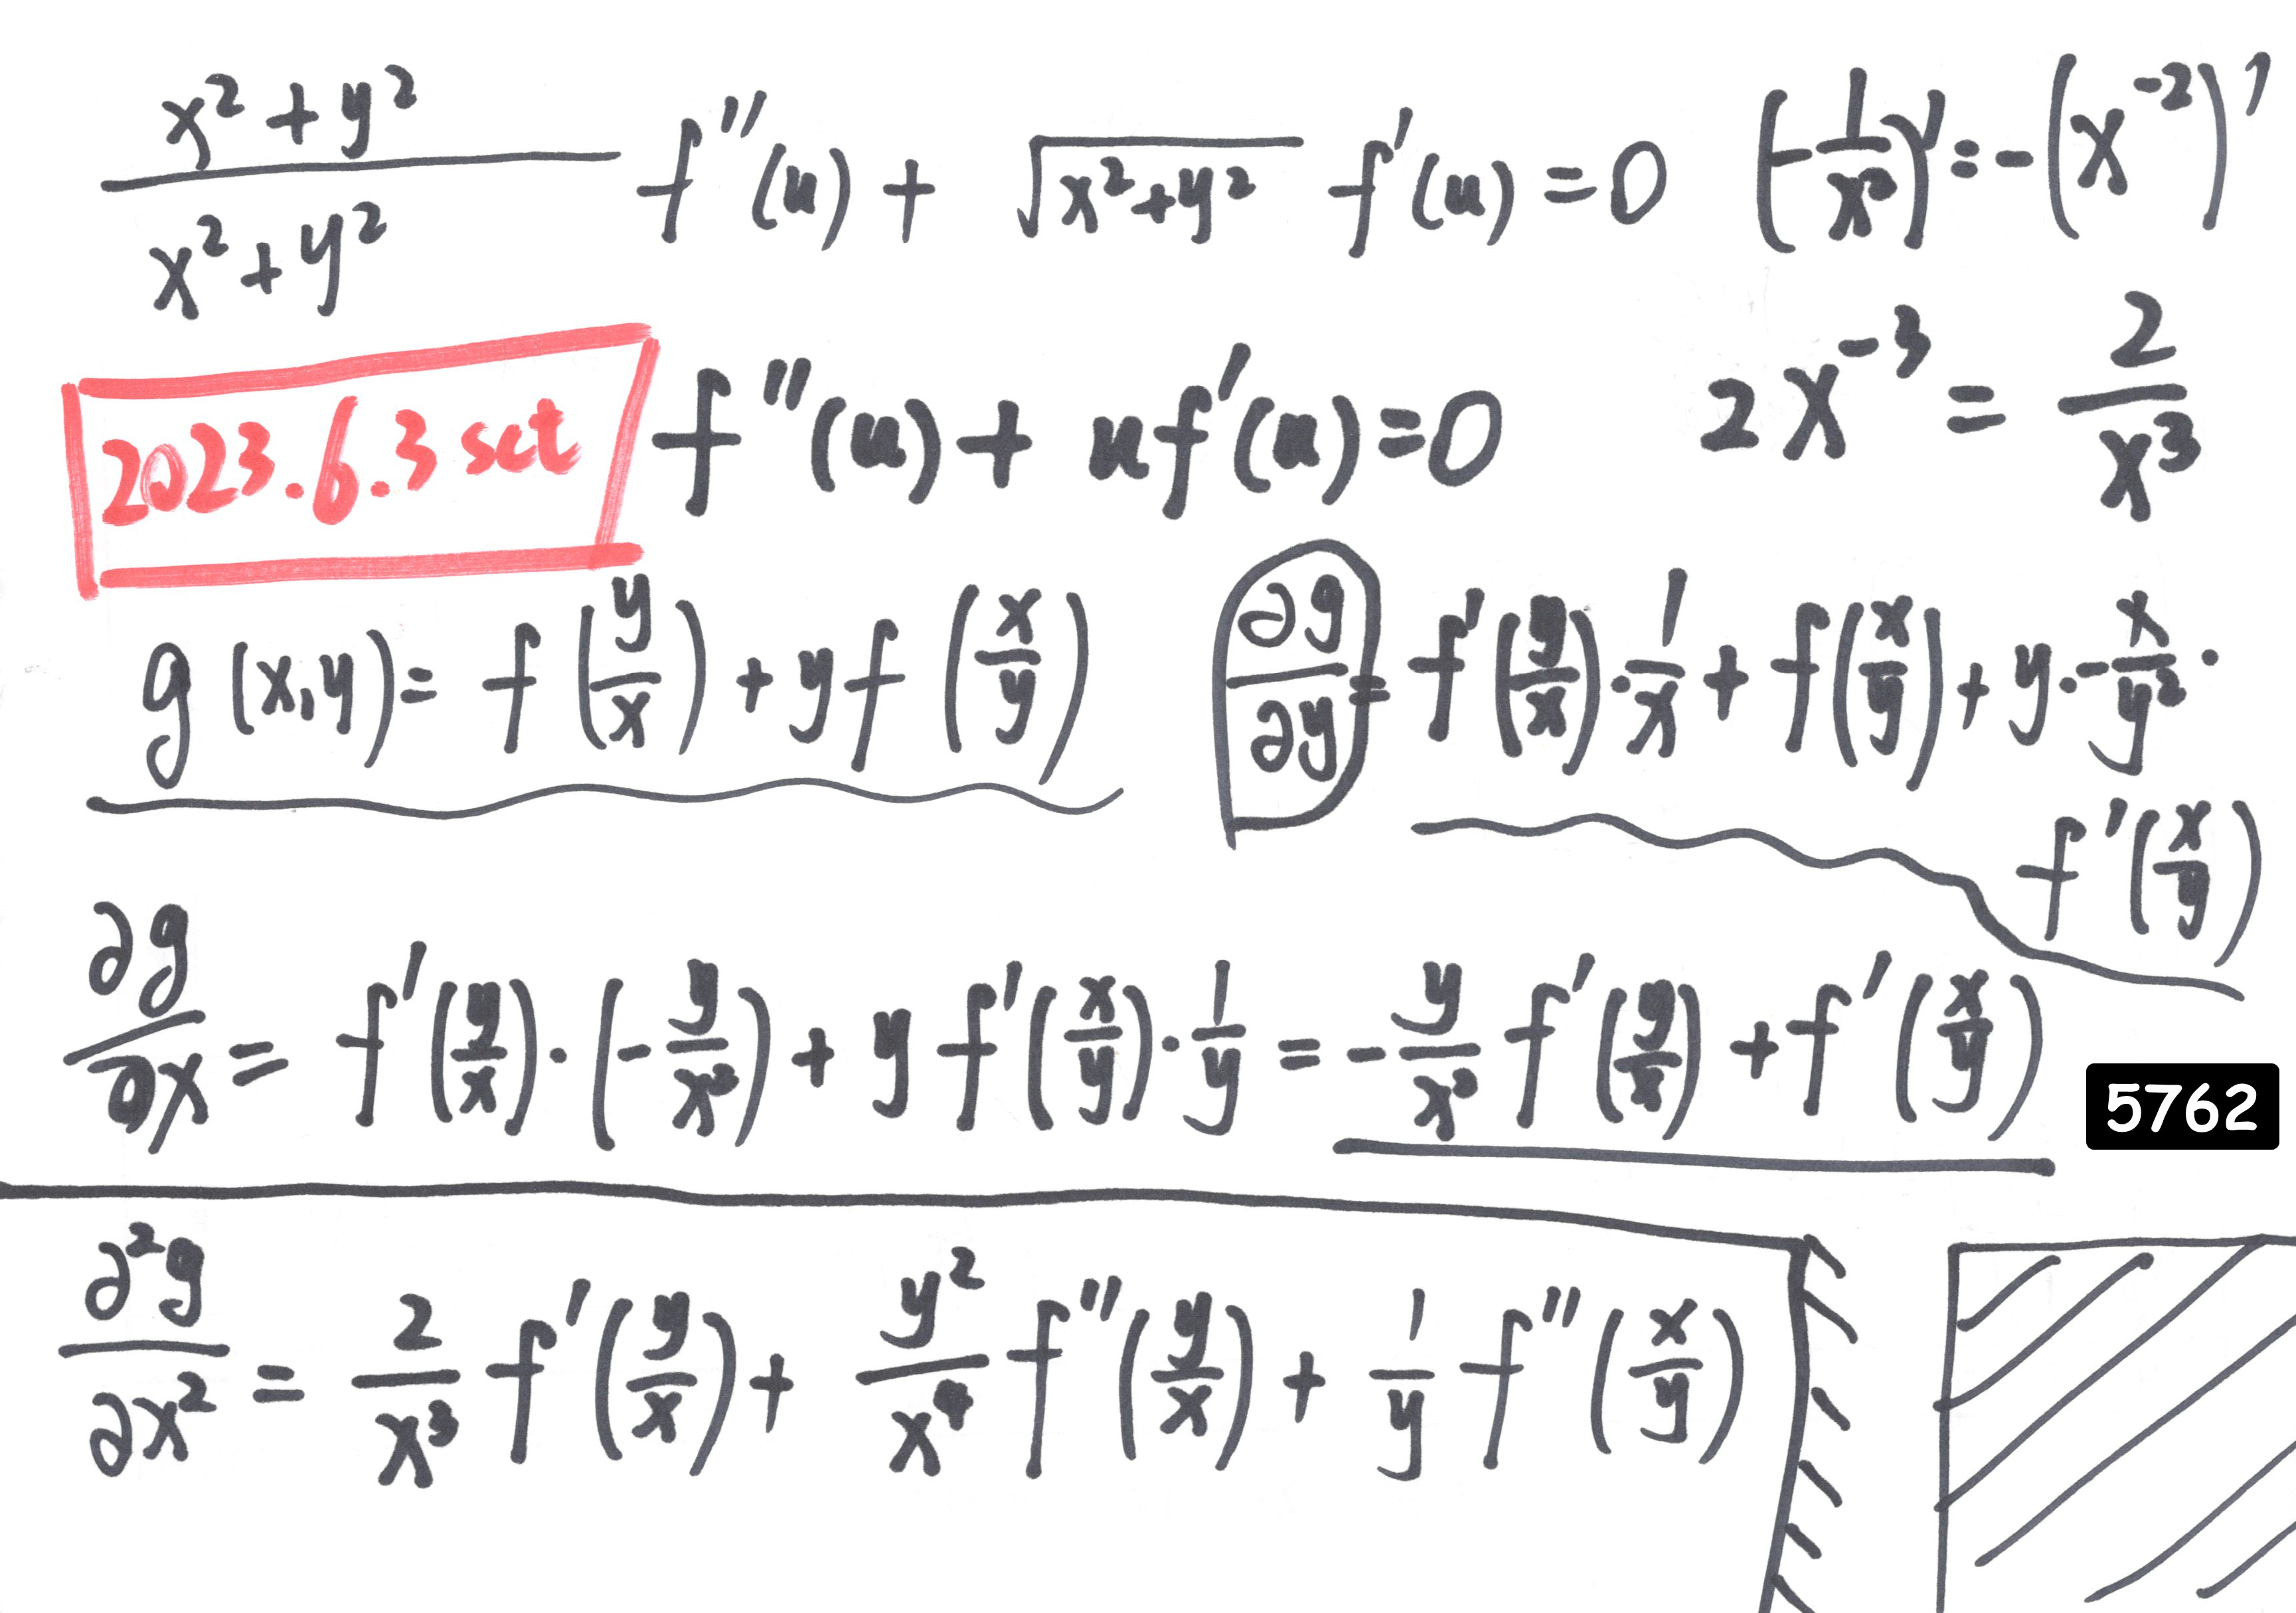 (x²+y²)/(x²+y²) f''(u) + √(x²+y²) f'(u) = 0
(-1/x²)' = -(x⁻²)'
2023.6.3 sct
f''(u) + uf'(u) = 0
2x⁻³ = 2/x³
g(x,y) = f(y/x) + yf(x/y)
∂g/∂y = f'(y/x)·1/x + f(x/y) + y·-x/y²·
f'(x/y)
∂g/∂x = f'(y/x)·(-y/x²) + yf'(x/y)·1/y = -y/x² f'(y/x) + f'(x/y)
5762
∂²g/∂x² = 2/x³ f'(y/x) + y²/x⁴ f''(y/x) + 1/y f''(x/y)